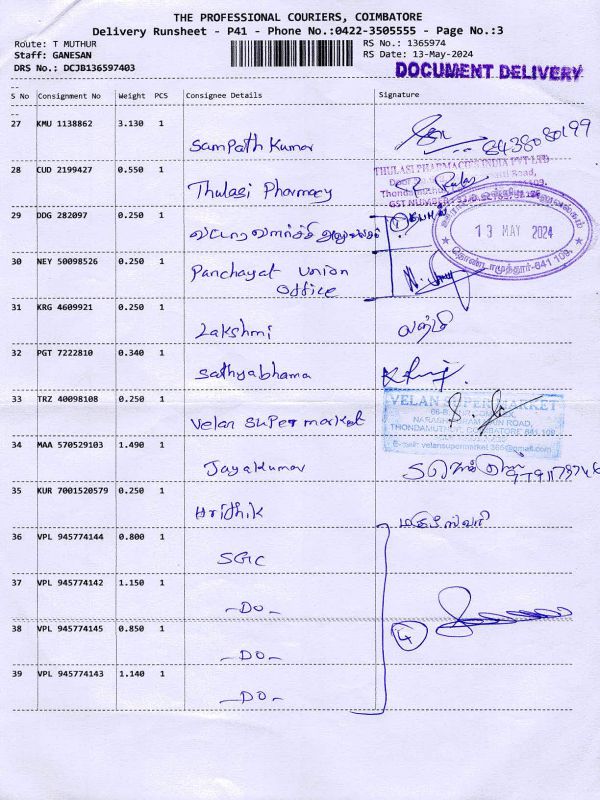 THE PROFESSIONAL COURIERS, COIMBATORE
Delivery Runsheet - P41 - Phone No.:0422-3505555 - Page No.:3
Route: T MUTHUR
RS No.: 1365974
Staff: GANESAN
RS Date: 13-May-2024
DRS No.: DCJB136597403
DOCUMENT DELIVERY
S No Consignment No Weight PCS Consignee Details Signature
27 KMU 1138862 3.130 1 Sampath Kumar
8438080199
28 CUD 2199427 0.550 1 Thulasi Pharmacy
THULASI PHARMACIES INDIA PVT LTD
29 DDG 282097 0.250 1
13 MAY 2024
தொண்டாமுத்தூர்-641 109.
30 NEY 50098526 0.250 1 Panchayat union
office
31 KRG 4609921 0.250 1 Lakshmi
32 PGT 7222810 0.340 1 Sathyabhama
33 TRZ 40098108 0.250 1 Velan Super market
VELAN SUPER MARKET
THONDAMUTHUR, COIMBATORE 641 109.
E-mail: velansupermarket365@gmail.com
34 MAA 570529103 1.490 1 Jayakumar
35 KUR 7001520579 0.250 1 Hrithik
36 VPL 945774144 0.800 1 SGC
37 VPL 945774142 1.150 1 -DO-
4
38 VPL 945774145 0.850 1 -DO-
39 VPL 945774143 1.140 1 -DO-